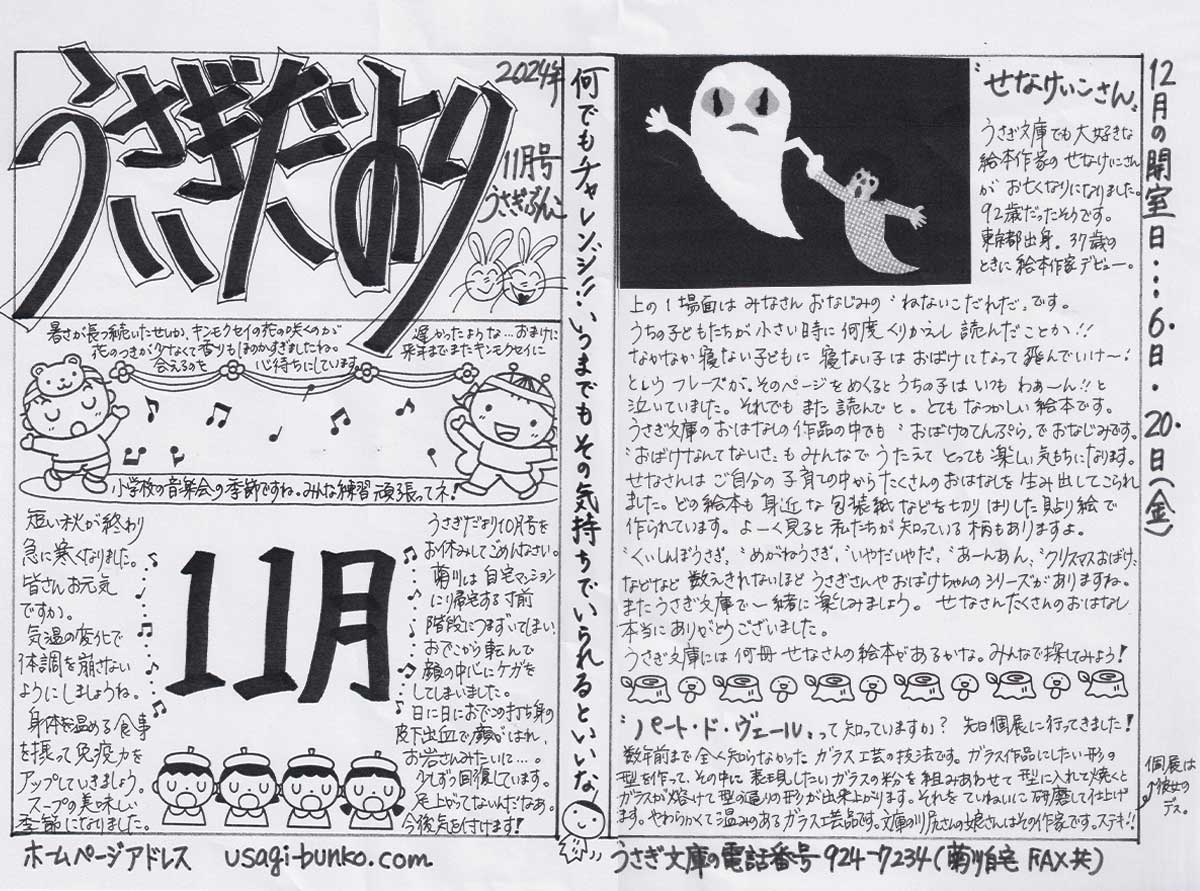 うさぎだより
2024年
11月号
うさぎぶんこ
暑さが長っ続いたせいか、キンモクセイの花の咲くのが
遅かったような…おまけに
花のつきが少なくて香りもほのかすぎましたね。
来年までまたキンモクセイに
会えるのを
心待ちにしています。
小学校の音楽会の季節ですね。みんな練習頑張ってネ!
短い秋が終わり
急に寒くなりました。
皆さんお元気
ですか。
気温の変化で
体調を崩さない
ようにしましょうね。
身体を温める食事
を摂って免疫力を
アップしていきましょう。
スープの美味しい
季節になりました。
11月
うさぎだより10月号を
お休みしてごめんなさい。
菊川は自宅マンション
に帰宅する寸前
階段につまずいてしまい、
おでこから転んで
顔の中心にケガを
してしまいました。
日に日におでこの打ち身の
皮下出血で顔がはれ、
お岩さんみたいに…。
少しずつ回復しています。
足上がってないんだなあ。
今後気を付けます!
何でもチャレンジ!!いつまでもその気持ちでいられるといいな
ホームページアドレス usagi-bunko.com
〝せなけいこさん〟
うさぎ文庫でも大好きな
絵本作家のせなけいこさん
がお亡くなりになりました。
92歳だったそうです。
東京都出身。37歳の
ときに絵本作家デビュー。
上の1場面はみなさんおなじみの〝ねないこだれだ〟です。
うちの子どもたちが小さい時に何度くりかえし読んだことか!!
なかなか寝ない子どもに寝ない子はおばけになって飛んでいけ〜!
というフレーズが。そのページをめくるとうちの子はいつもわぁ〜ん!!と
泣いていました。それでもまた読んでと。とてもなつかしい絵本です。
うさぎ文庫のおはなしの作品の中でも〝おばけのてんぷら〟でおなじみです。
〝おばけなんてないさ〟もみんなでうたえてとっても楽しい気もちになります。
せなさんはご自分の子育ての中からたくさんのおはなしを生み出してこられ
ました。どの絵本も身近な包装紙などを切りはりした貼り絵で
作られています。よーく見ると私たちが知っている柄もありますよ。
〝くいしんぼうさぎ〟〝めがねうさぎ〟〝いやだいやだ〟〝あーんあん〟〝クリスマスおばけ〟
などなど数えきれないほどうさぎさんやおばけちゃんのシリーズがありますね。
またうさぎ文庫で一緒に楽しみましょう。せなさんたくさんのおはなし
本当にありがとうございました。
うさぎ文庫には何冊せなさんの絵本があるかな。みんなで探してみよう!
〝パート・ド・ヴェール〟って知っていますか? 先日個展に行ってきました!
数年前まで全く知らなかったガラス工芸の技法です。ガラス作品にしたい形の
型を作って、その中に表現したいガラスの粉を組みあわせて型に入れて焼くと
ガラスが熔けて型の通りの形が出来上がります。それをていねいに研磨して仕上げ
ます。やわらかくて温みのあるガラス工芸品です。文庫の川尻さんの娘さんはその作家です。ステキ!!
個展は
彼女の
デス。
12月の開室日…6日・20日(金)
うさぎ文庫の電話番号 924-7234(菊川自宅 FAX共)